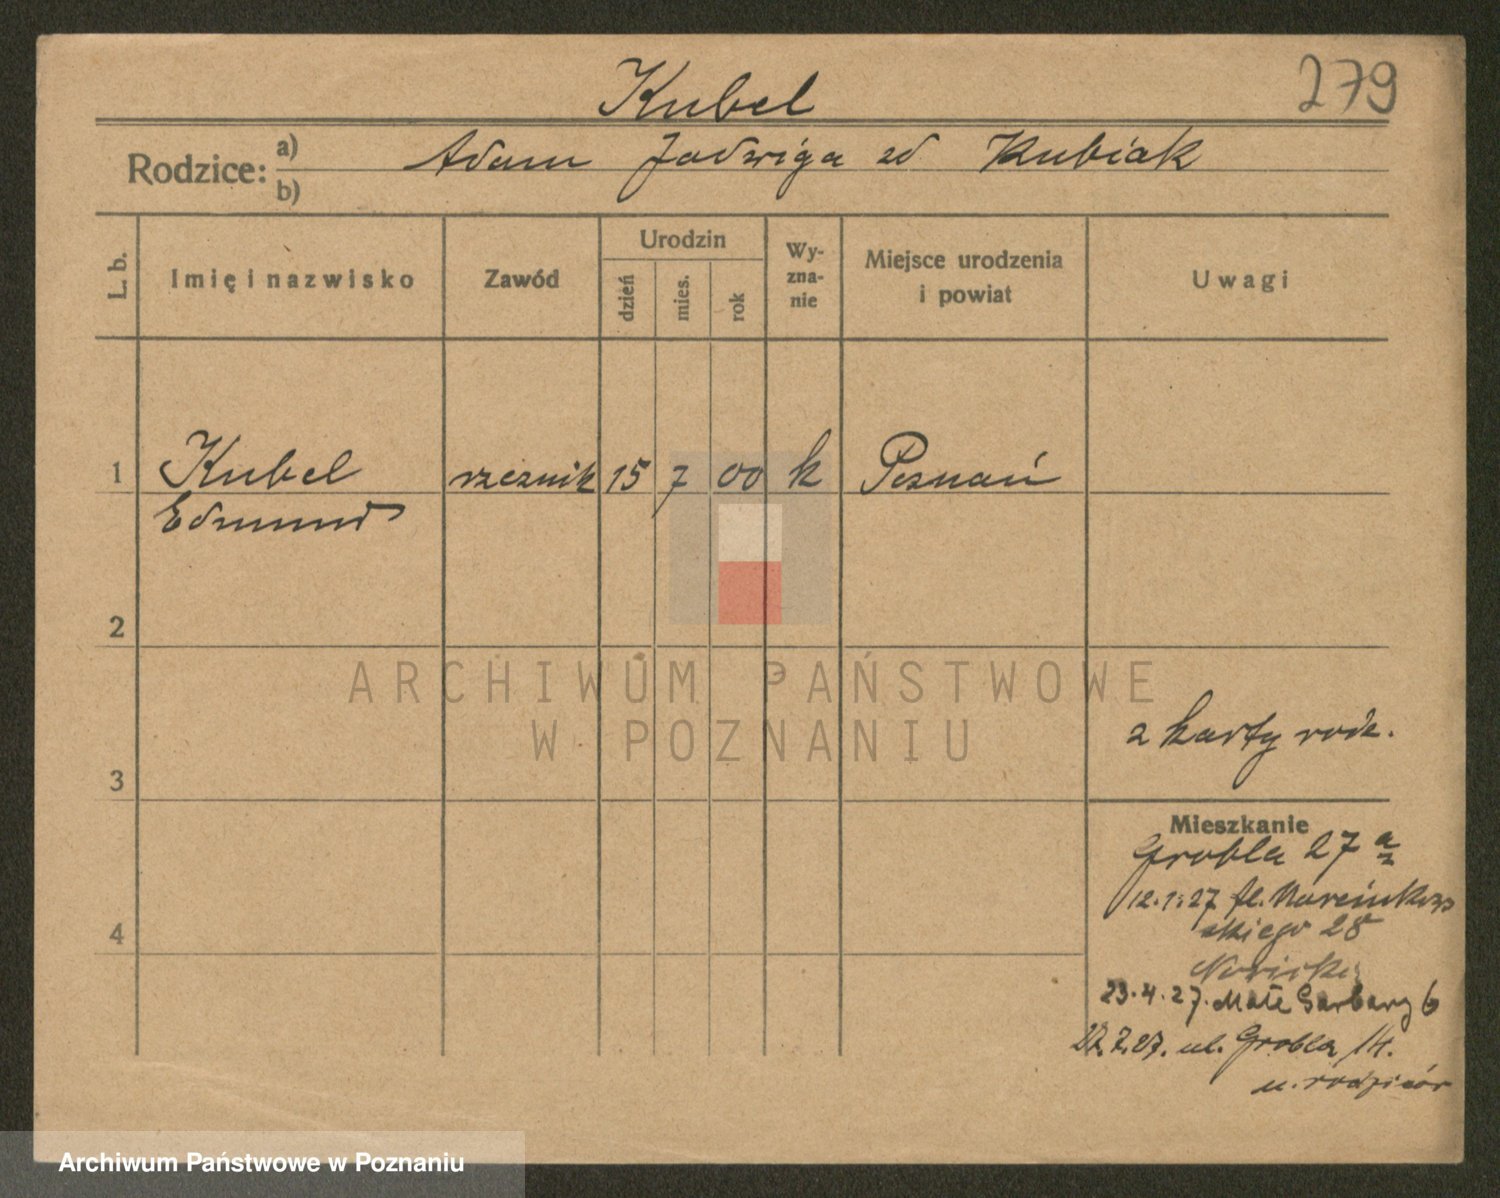 279
Kubel
Rodzice: a) Adam Jadwiga zd Kubiak
b)
L. b.
Imię i nazwisko
Zawód
Urodzin
dzień
mies.
rok
Wy-
zna-
nie
Miejsce urodzenia
i powiat
Uwagi
1 Kubel rzeznik 15 7 00 k Poznań
Edmund
2
ARCHIWUM PAŃSTWOWE
W POZNANIU
z karty rodz.
3
Mieszkanie
Grobla 27
12.1.27 Pl. Marcinkow
skiego 28
4
23.4.27. Małe Garbary 6
22.7.27. ul. Grobla 14.
u. rodziców
Archiwum Państwowe w Poznaniu